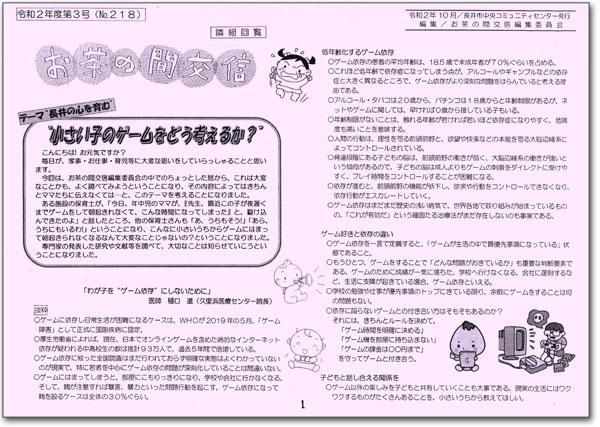 令和2年度第3号（No.218）
隣組回覧
お茶の間交信
テーマ"長井の心を育む"
"小さい子のゲームをどう考えるか？"
こんにちは！お元気ですか？
毎日が、家事・お仕事・育児等に大変な思いをしていらっしゃることと思います。
今回は、お茶の間交信編集委員会の中でのちょっとした話から、これは大変なことかも、よく調べてみようということになり、その内容によってはきちんとママたちに伝えなくては…と、このテーマを考えることになりました。
ある施設の保育士が、「今日、年中児のママが、『先生、最近この子が夜遅くまでゲームをして朝起きれなくて、こんな時間になってしまった』と、駆け込んできたのよ」と話したところ、他の保育士さんも「あ、うちもそう！」「あら、うちにもいるわ！」ということになり、こんなに小さいうちからゲームにはまって朝起きられなくなるなんて大変なことじゃないの？ということになりました。
専門家の発表した研究や文献等を調べて、大切なことは知らせていこうということになりました。
「わが子を"ゲーム依存"にしないために」
医師　樋口　進（久里浜医療センター院長）
抜粋
○ゲームに依存し日常生活が困難になるケースは、WHOが2019年の5月、「ゲーム障害」として正式に国際疾病に認定。
○厚生労働省によれば、現在、日本でオンラインゲームを含めた病的なインターネット依存が疑われる中高校生の数は推計93万人で、過去5年間で倍増している。
○ゲーム依存に絞った全国調査はまだ行われておらず明確な実態はよくわかっていないのが現実で、特に若者を中心にゲーム依存の問題が深刻化していることは間違いない。
○ゲームにはまってしまうと、部屋にこもりっきりになり、学校や会社に行かなくなる。そして、親が注意すれば暴言、暴力といった問題行動を起こす。ゲーム依存になって銭を殴るケースは全体の30％ぐらい。
令和2年10月／長井市中央コミュニティセンター発行
編集／お茶の間交信編集委員会
低年齢化するゲーム依存
○ゲーム依存の患者の平均年齢は、18.5歳で未成年者が70％ぐらいを占める。
○これほど低年齢で依存症になってしまう点が、アルコールやギャンブルなどの依存症と大きく異なるところで、ゲーム依存がより深刻な問題をはらんでいると考える理由である。
○アルコール・タバコは20歳から、パチンコは18歳からと年齢制限があるが、ネットやゲームに関しては、早ければ0歳から接している子もいる。
○年齢制限がないことは、触れる年齢が若ければ若いほど依存症になりやすく、危険度も高いことを意味する。
○人間の行動は、理性を司る前頭前野と、欲望や快楽などの本能を司る大脳辺縁系によってコントロールされている。
○発達段階にある子どもの脳は、前頭前野の働きが弱く、大脳辺縁系の働きが強いという傾向があるので、子どもは成人よりもゲームの刺激をダイレクトに受けやすく、プレイ時間をコントロールすることが困難になる。
○依存が進むと、前頭前野の機能が低下し、欲求や行動をコントロールできなくなり、依存行動がエスカレートしていく。
○ゲーム依存はまだまだ歴史の浅い病気で、世界各地で取り組みが始まっているものの、「これが有効だ」という確固たる治療法がまだ存在しないのも事実である。
ゲーム好きと依存の違い
○ゲーム依存を一言で定義すると、「ゲームが生活の中で最優先事項になっている」状態であること。
○もうひとつ、ゲームをすることで「どんな問題がおきているか」も重要な判断要素である。ゲームのために成績が一気に落ちた、学校へ行けなくなる、会社に遅刻するなど、生活に支障が起きている場合、ゲーム依存といえる。
○学校の勉強や仕事が優先事項のトップにきている限り、余暇にゲームをすることは何の問題もない。
○依存に陥らないゲームとの付き合い方はそもそもあるのか？
それには、きちんとルールを決めて、
「ゲーム時間を明確に決める」
「ゲーム機を部屋に持ち込まない」
「ゲームの課金は〇〇円まで」
を守ってゲームと付き合う。
子どもと話し合える関係を
○ゲーム以外の楽しみを子どもと共有していくことも大事である。現実の生活にはワクワクするものがたくさんあることを、小さいうちから教えてほしい。
1